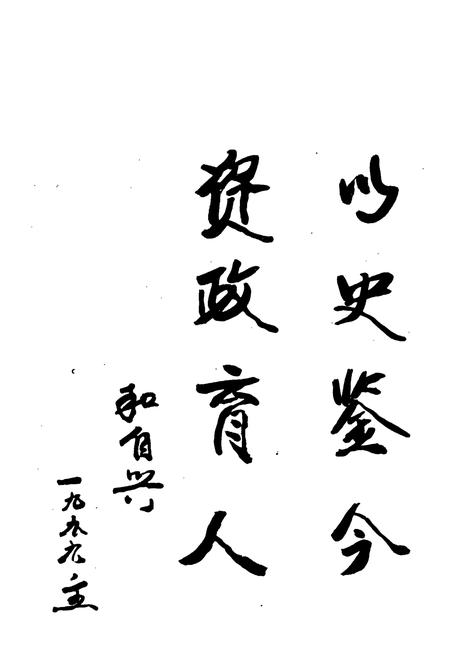 以史鉴今
资政育人
和自兴
一九九九